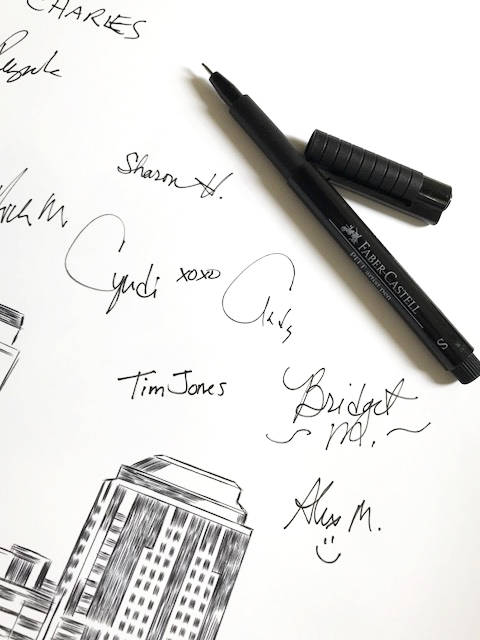 CHARLES
Sharon H.
M.
Cyndi xoxo
FABER-CASTELL
PITT artist pen
S
Tim Jones
Bridget
M.
Alex M.